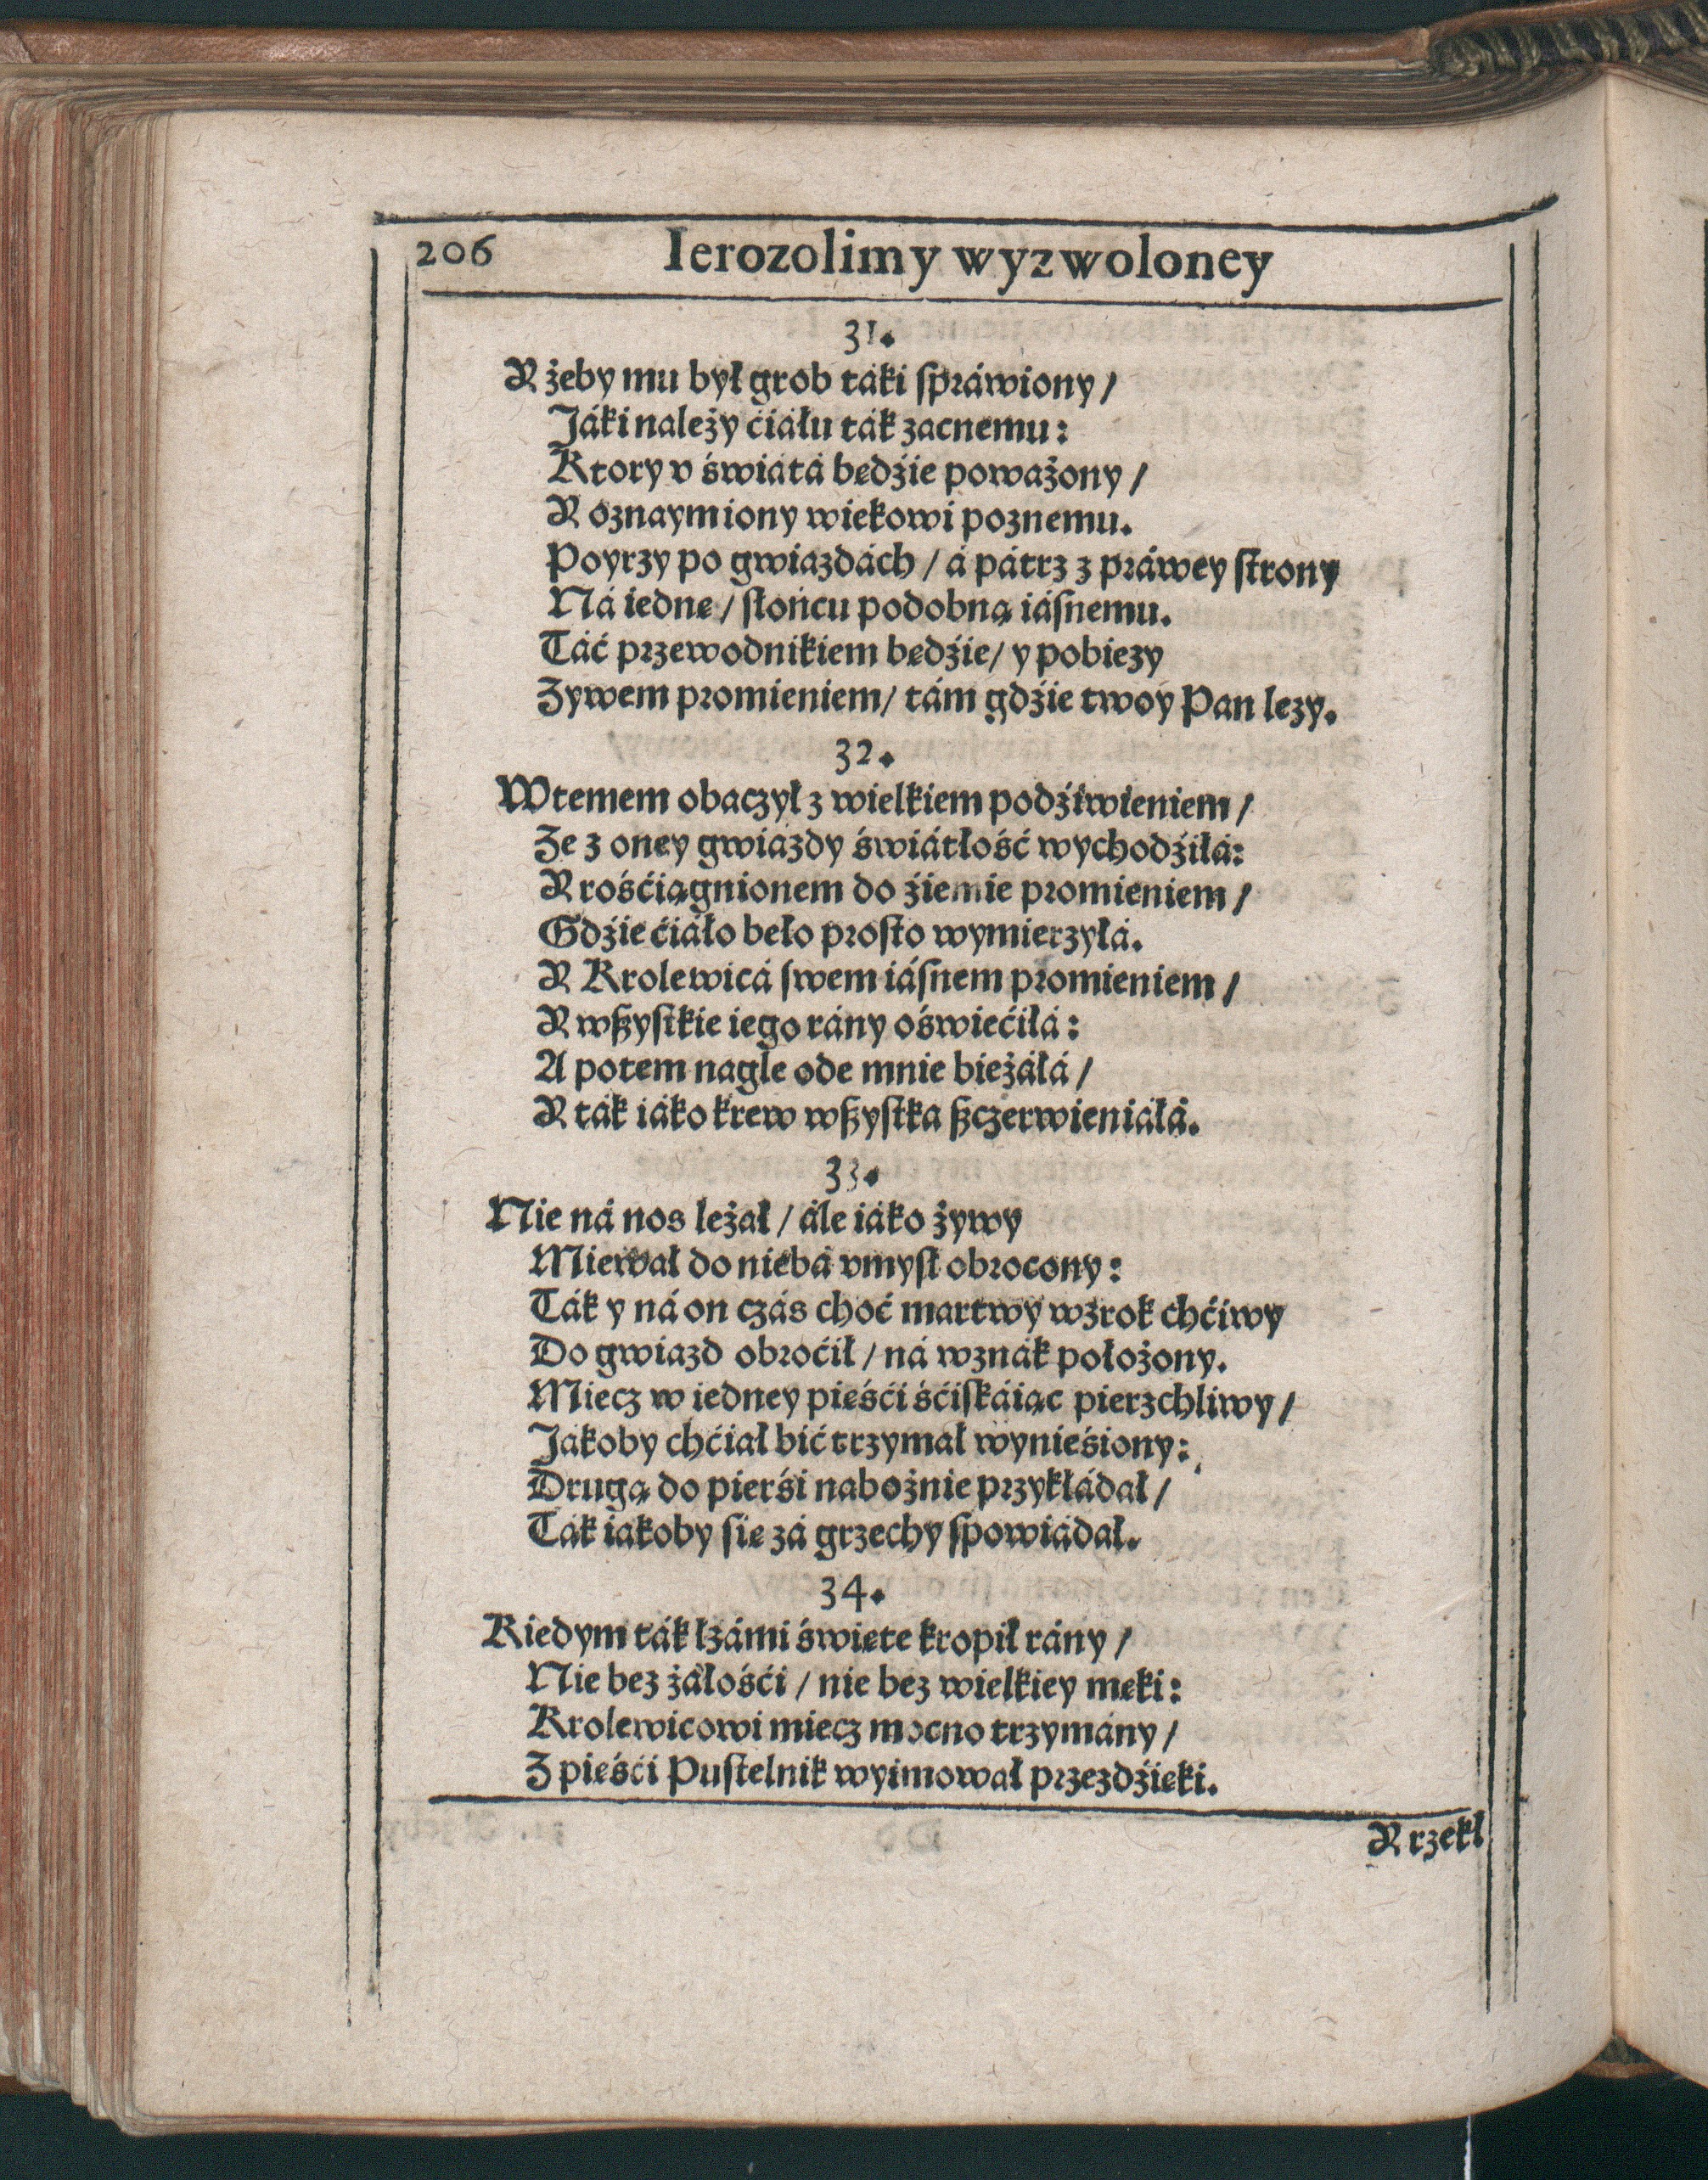 206 Ierozolimy wyzwoloney
31.
Y żeby mu był grob táki spráwiony /
Jáki należy ćiáłu ták zacnemu:
Ktory v świátá będźie poważony /
Y oznaymiony wiekowi poznemu.
Poyrzy po gwiazdách / á pátrz z práwey strony
Ná iednę / słońcu podobną iásnemu.
Táć przewodnikiem będźie / y pobiezy
Zywem promieniem / tám gdźie twoy Pan lezy.
32.
Wtemem obaczył z wielkiem podźiwieniem /
Ze z oney gwiazdy świátłość wychodźiłá:
Y rośćiągnionem do źiemie promieniem /
Gdźie ćiáło beło prosto wymierzyłá.
Y Krolewicá swem iásnem promieniem /
Y wszystkie iego rány oświećiłá:
A potem nagle ode mnie bieżáłá /
Y ták iáko krew wszystka szczerwieniáłá.
33.
Nie ná nos leżał / ále iáko żywy
Miewał do niebá vmysł obrocony:
Ták y ná on czás choć martwy wzrok chćiwy
Do gwiazd obroćił / ná wznák położony.
Miecz w iedney pięśći śćiskáiąc pierzchliwy /
Jákoby chćiał bić trzymał wynieśiony:
Drugą do pierśi nabożnie przykłádał /
Ták iákoby się zá grzechy spowiádał.
34.
Kiedym ták łzámi święte kropił rány /
Nie bez żáłośći / nie bez wielkiey męki:
Krolewicowi miecz mocno trzymány /
Z pięśći Pustelnik wyimował przezdźięki.
Y rzekł